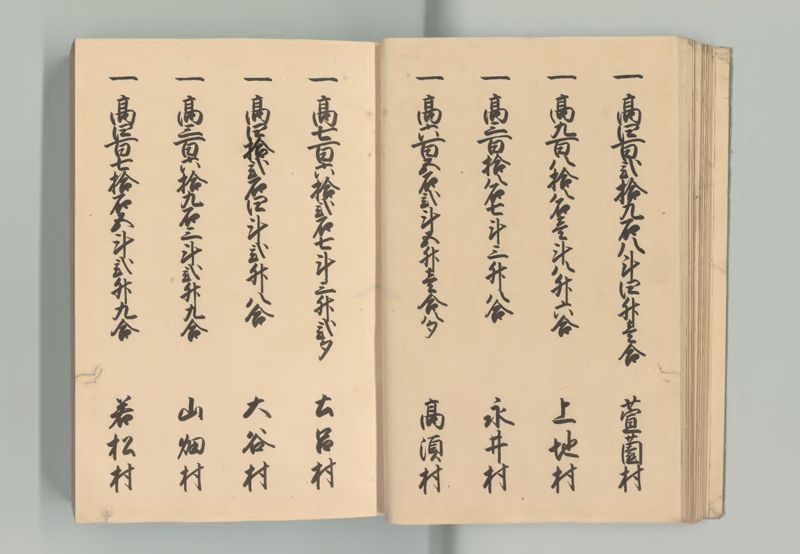 一 高四百弐拾九石八斗四升壱合 萱園村
一 高九百八拾八石壱斗八升六合 上地村
一 高三百拾八石七斗三升八合 永井村
一 高六百五石弐斗五升壱合八夕 高須村
一 高七百六拾弐石七斗三升弐夕 土呂村
一 高四拾弐石四斗弐升八合 大谷村
一 高三百六拾九石三斗弐升九合 山畑村
一 高四百七拾石五斗弐升九合 若松村